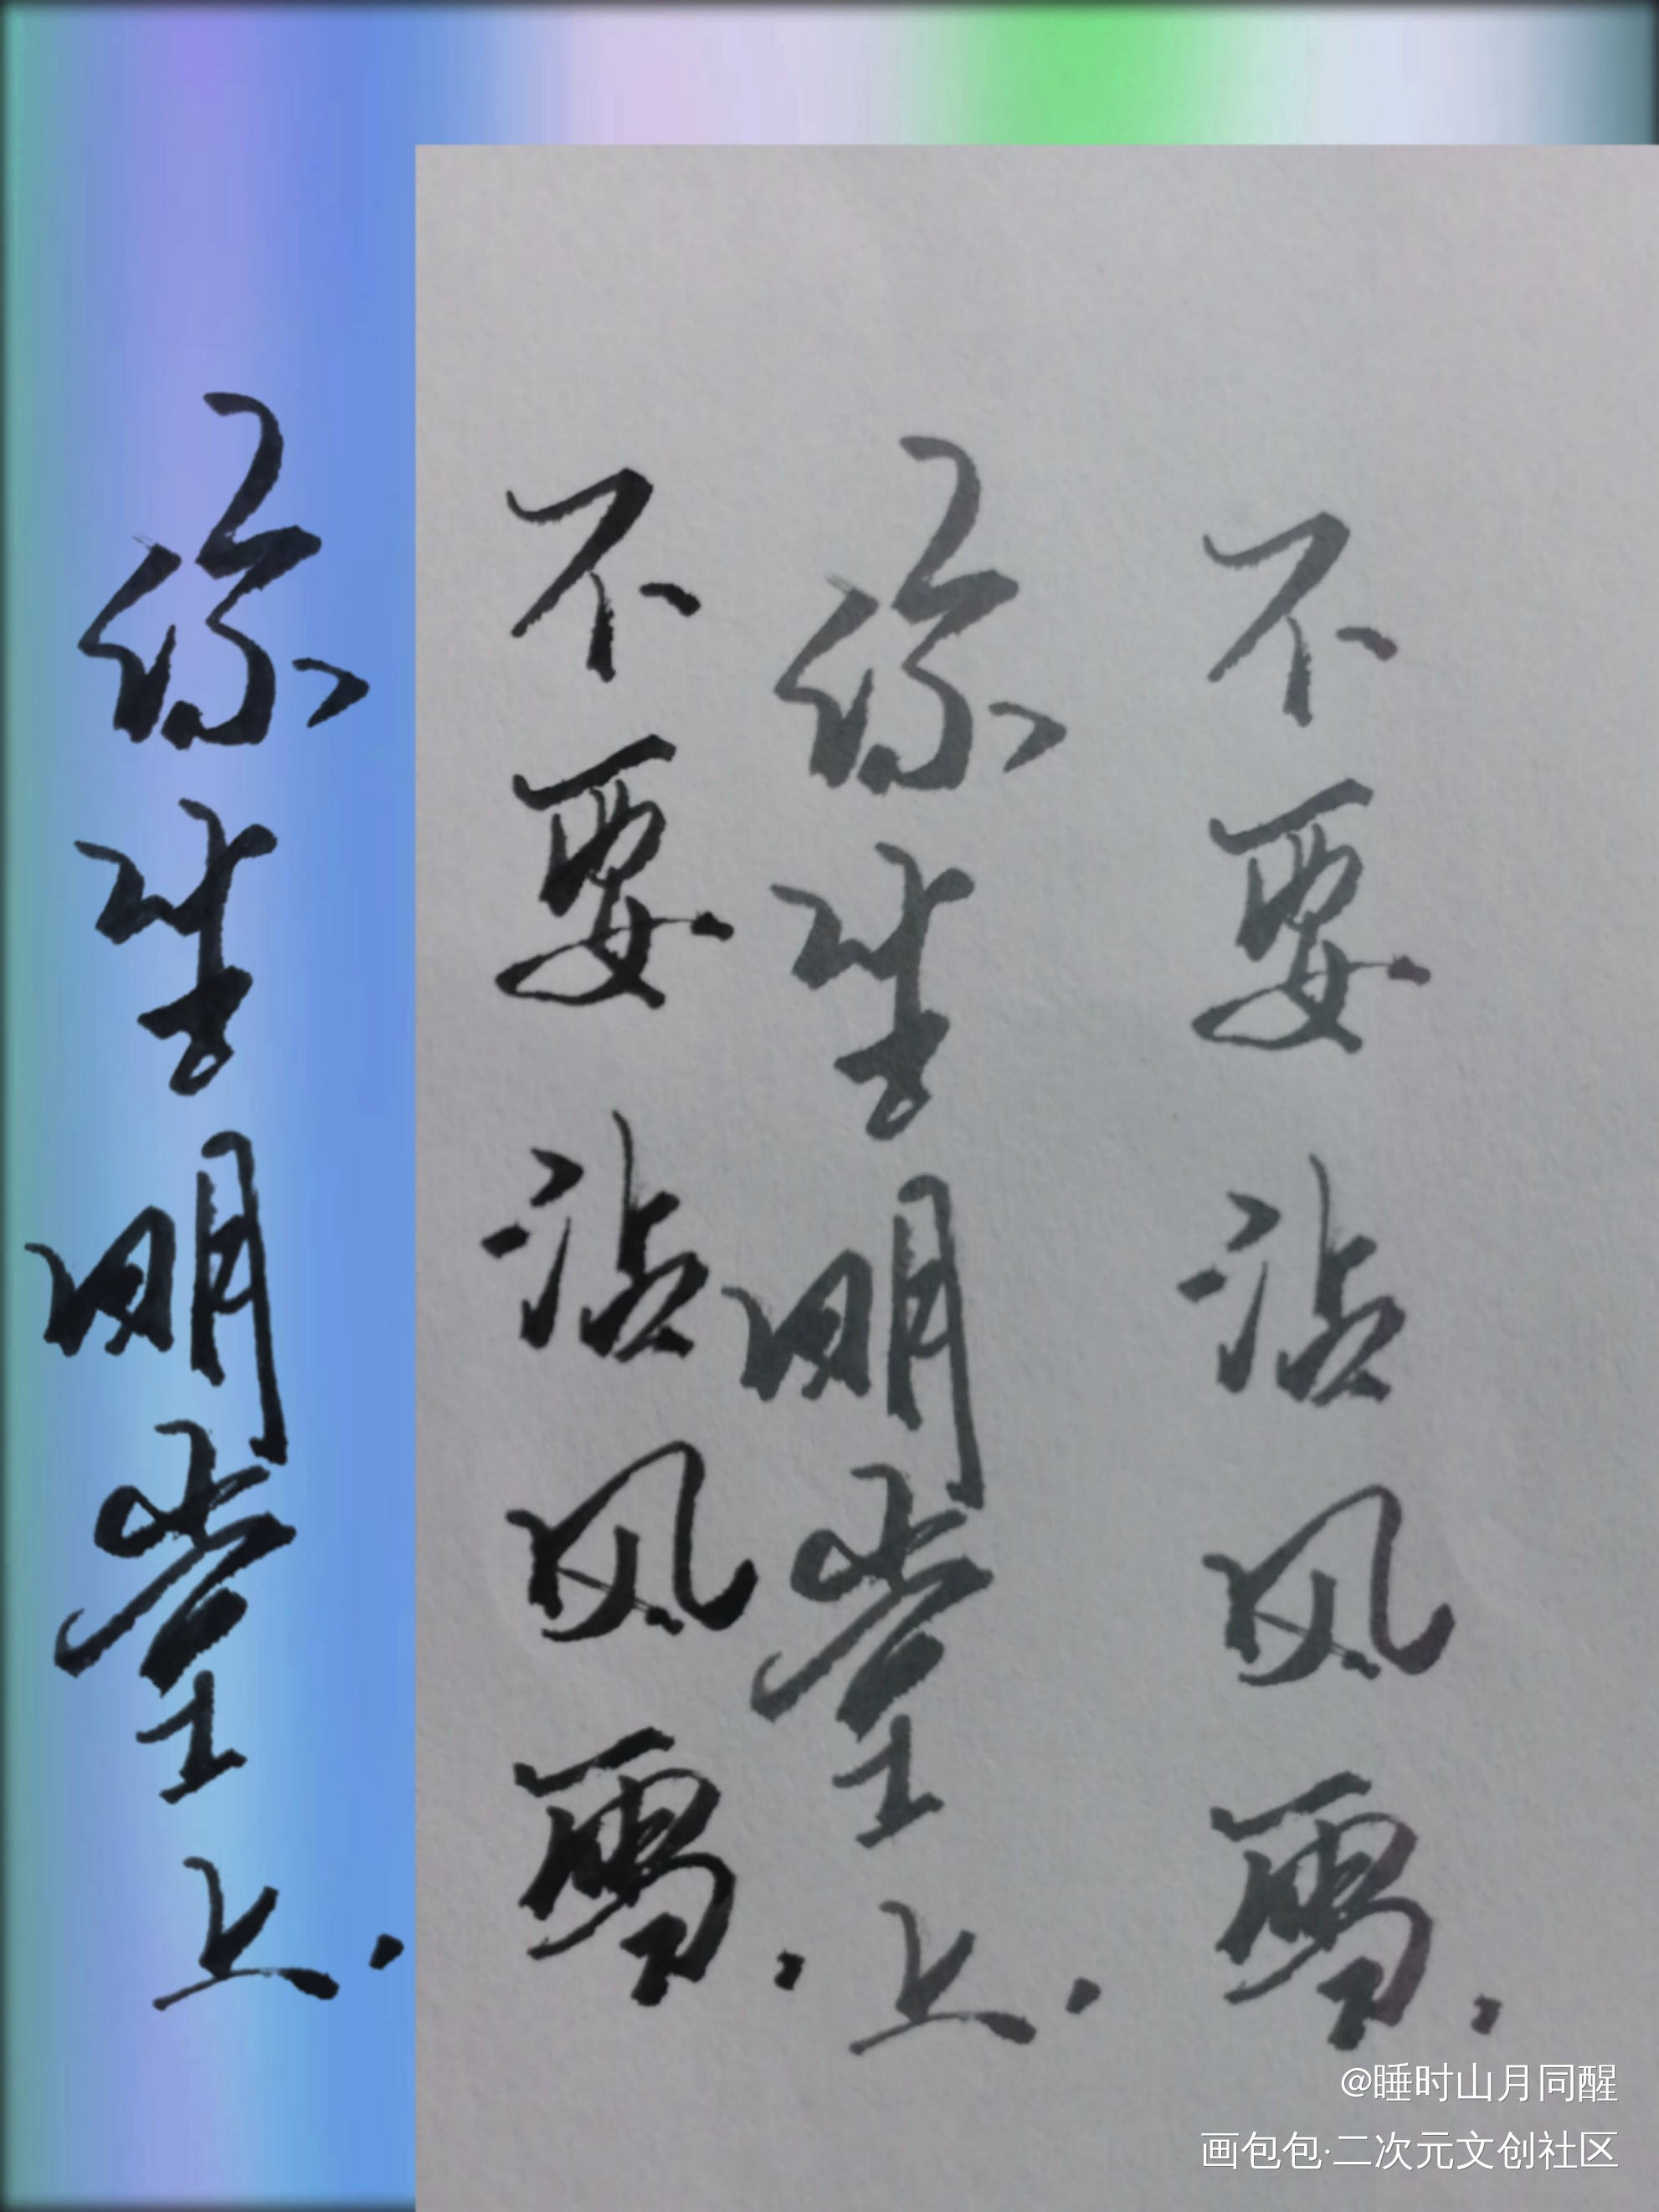 不要沾风雪.
你坐明堂上.
不要沾风雪.
你坐明堂上.
@睡时山月同醒
画包包·二次元文创社区